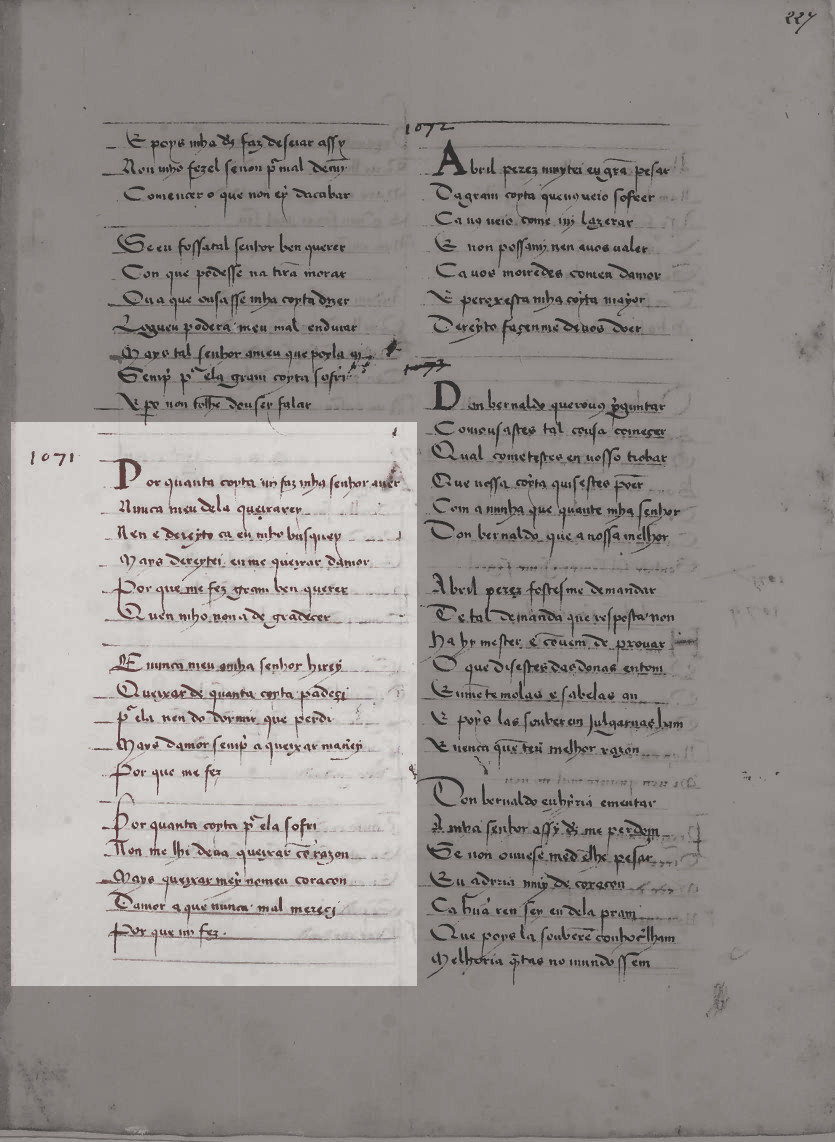 227
E poys mha ds faz deseiar assy
Non mho fezel senon pᵃ mal demĩ
Comencer o que non ey dacabar
Se eu fossatal senhor ben querer
Con que podesse na tira morar
Ou a que ousasse mha coyta dizer
Logueu podera meu mal endurar
Mays tal senhor ameu que poyla ui
Semp pᵃ ela gram coyta sofri
E po non tolhe deuser falar
1071
Por quanta coyta mi faz mha senhor auer
Nunca meu dela queixarey
Nen e dereyto ca eu mho busquey
Mays dereytei en me queixar damor
Por que me fez gram ben querer
Quen mho non a de gradecer
E nunca meu amha senhor hirey
Queixar de quanta coyta padeçi
pᵃ ela nen do dormir que perdi
Mays damor semp a queixar mauey
Por que me fez
Por quanta coyta pᵃ ela sofri
Non me lhi deua queixar cõ razon
Mays queixar mey nomeu coracon
Damor a que nunca mal mereçi
Por que mi fez.
1072
Abril perez muytei eu grã pesar
Da gram coyta que uus ueio sofrer
Ca uus ueio come mi lazerar
E non possami nen auos ualer
Ca uos moiredes comeu damor
E pero xesta mha coyta mayor
Dereyto façenme deuos doer
1073
Don bernaldo querouus preguntar
Comousastes tal cousa começer
Qual cometestes en uosso trobar
Que uossa coyta quisestes põer
Com a minha que quante mha senhor
Don bernaldo que a uossa melhor
Abril perez fostes me demandar
De tal demanda que resposta non
Ha hy mester e conuem de prouar
O que disestes das donas entom
Eumetemolas e sabelas an
E poys las souberem julgarnos ham
E uenca que teu melhor razon
Don bernaldo eu hyria ementar
A mha senhor assy ds me perdom
Se non ouuese med elhe pesar
Eu adiria muy de coraçon
Ca hũa ren sey eu dela pram
Que poys la souberẽ conhocelham
Melhoria qᵃntas no mundo ssom